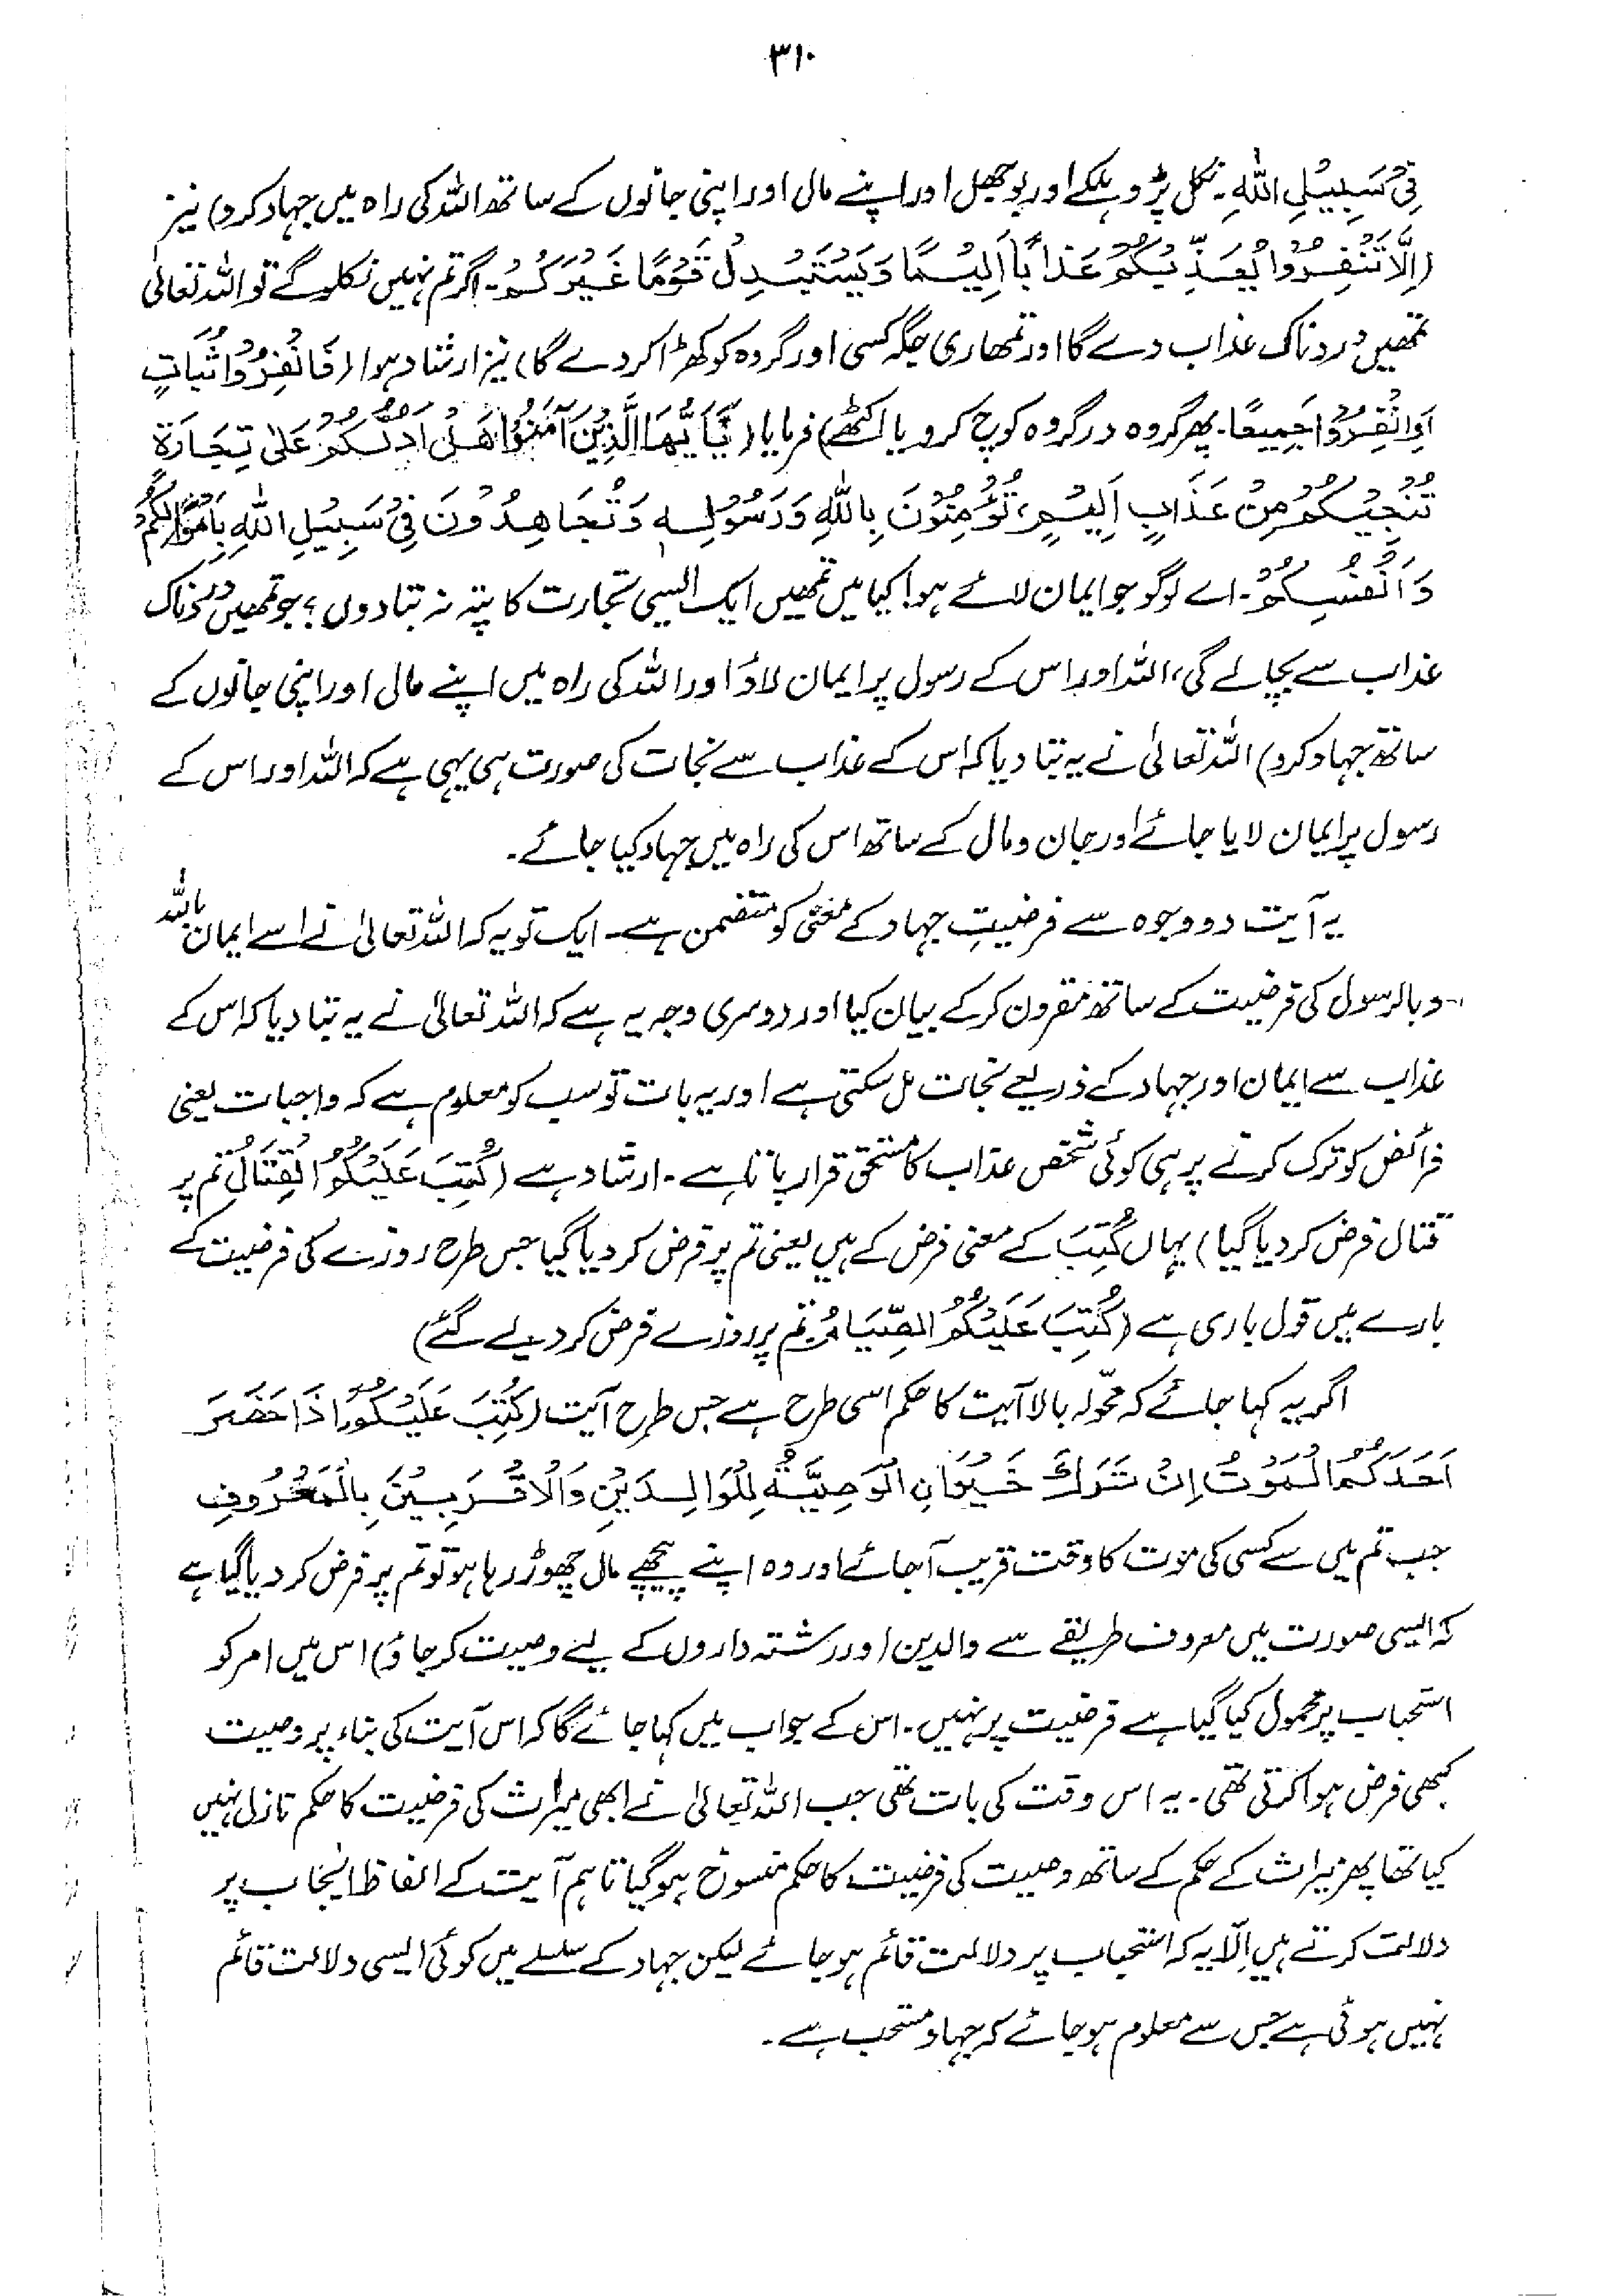 ۳۱۰
فِیْ سَبِیْلِ اللّٰہِ۔ نکل پڑو ہلکے اور بوجھل اور اپنے مال اور اپنی جانوں کے ساتھ اللہ کی راہ میں جہاد کرو) نیز
(اِلَّا تَنْفِرُوْا یُعَذِّبْکُمْ عَذَابًا اَلِیْمًا وَیَسْتَبْدِلْ قَوْمًا غَیْرَکُمْ۔ اگر تم نہیں نکلو گے تو اللہ تعالیٰ
تمھیں دردناک عذاب دے گا اور تمھاری جگہ کسی اور گروہ کو کھڑا کر دے گا) نیز ارشاد ہوا (فَانْفِرُوْا ثُبَاتٍ
اَوِانْفِرُوْا جَمِیعًا۔ پھر گروہ در گروہ کوچ کرو یا اکٹھے) فرمایا (یٰٓاَیُّھَا الَّذِیْنَ آمَنُوْا ھَلْ اَدُلُّکُمْ عَلٰی تِجَارَۃٍ
تُنْجِیْکُمْ مِنْ عَذَابٍ اَلِیْمٍ، تُؤْمِنُوْنَ بِاللّٰہِ وَرَسُوْلِہٖ وَتُجَاھِدُوْنَ فِیْ سَبِیْلِ اللّٰہِ بِاَمْوَالِکُمْ
وَاَنْفُسِکُمْ۔ اے لوگو جو ایمان لائے ہو! کیا میں تمھیں ایک ایسی تجارت کا پتہ نہ بتا دوں؟ جو تمھیں دردناک
عذاب سے بچا لے گی، اللہ اور اس کے رسول پر ایمان لاؤ اور اللہ کی راہ میں اپنے مال اور اپنی جانوں کے
ساتھ جہاد کرو) اللہ تعالیٰ نے یہ بتا دیا کہ اس کے عذاب سے نجات کی صورت ہی یہی ہے کہ اللہ اور اس کے
رسول پر ایمان لایا جائے اور جان و مال کے ساتھ اس کی راہ میں جہاد کیا جائے۔
یہ آیت دو وجوہ سے فرضیتِ جہاد کے معنی کو متضمن ہے۔ ایک تو یہ کہ اللہ تعالیٰ نے اسے ایمان باللہ
و بالرسول کی فرضیت کے ساتھ مقرون کرکے بیان کیا اور دوسری وجہ یہ ہے کہ اللہ تعالیٰ نے یہ بتا دیا کہ اس کے
عذاب سے ایمان اور جہاد کے ذریعے نجات مل سکتی ہے اور یہ بات تو سب کو معلوم ہے کہ واجبات یعنی
فرائض کو ترک کرنے پر ہی کوئی شخص عذاب کا مستحق قرار پاتا ہے۔ ارشاد ہے (کُتِبَ عَلَیْکُمُ الْقِتَالُ تم پر
قتال فرض کر دیا گیا) یہاں کُتِبَ کے معنی فرض کے ہیں یعنی تم پر فرض کر دیا گیا جس طرح روزے کی فرضیت کے
بارے میں قول باری ہے (کُتِبَ عَلَیْکُمُ الصِّیَامُ تم پر روزے فرض کر دیے گئے)
اگر یہ کہا جائے کہ محولہ بالا آیت کا حکم اسی طرح ہے جس طرح آیت (کُتِبَ عَلَیْکُمْ اِذَا حَضَرَ
اَحَدَکُمُ الْمَوْتُ اِنْ تَرَکَ خَیْرًا نِ الْوَصِیَّۃُ لِلْوَالِدَیْنِ وَالْاَقْرَبِیْنَ بِالْمَعْرُوفِ
جب تم میں سے کسی کی موت کا وقت قریب آجائے اور وہ اپنے پیچھے مال چھوڑ رہا ہو تو تم پر فرض کر دیا گیا ہے
کہ ایسی صورت میں معروف طریقے سے والدین اور رشتہ داروں کے لیے وصیت کر جاؤ) اس میں امر کو
استحباب پر محمول کیا گیا ہے فرضیت پر نہیں۔ اس کے جواب میں کہا جائے گا کہ اس آیت کی بناء پر وصیت
کبھی فرض ہوا کرتی تھی۔ یہ اس وقت کی بات تھی جب اللہ تعالیٰ نے ابھی میراث کی فرضیت کا حکم نازل نہیں
کیا تھا پھر میراث کے حکم کے ساتھ وصیت کی فرضیت کا حکم منسوخ ہو گیا تاہم آیت کے الفاظ ایجاب پر
دلالت کرتے ہیں اِلّا یہ کہ استحباب پر دلالت قائم ہو جائے لیکن جہاد کے سلسلے میں کوئی ایسی دلالت قائم
نہیں ہوئی ہے جس سے معلوم ہو جائے کہ جہاد مستحب ہے۔